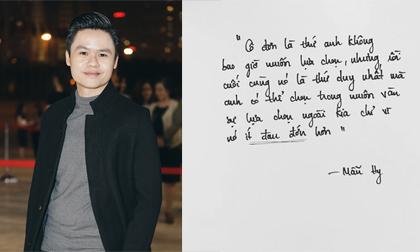 "Cô đơn là thứ anh không
bao giờ muốn lựa chọn, nhưng rồi
cuối cùng nó là thứ duy nhất mà
anh có thể chọn trong muôn vàn
sự lựa chọn ngoài kia chỉ vì
nó ít đau đớn hơn"
— Mẫu Hy